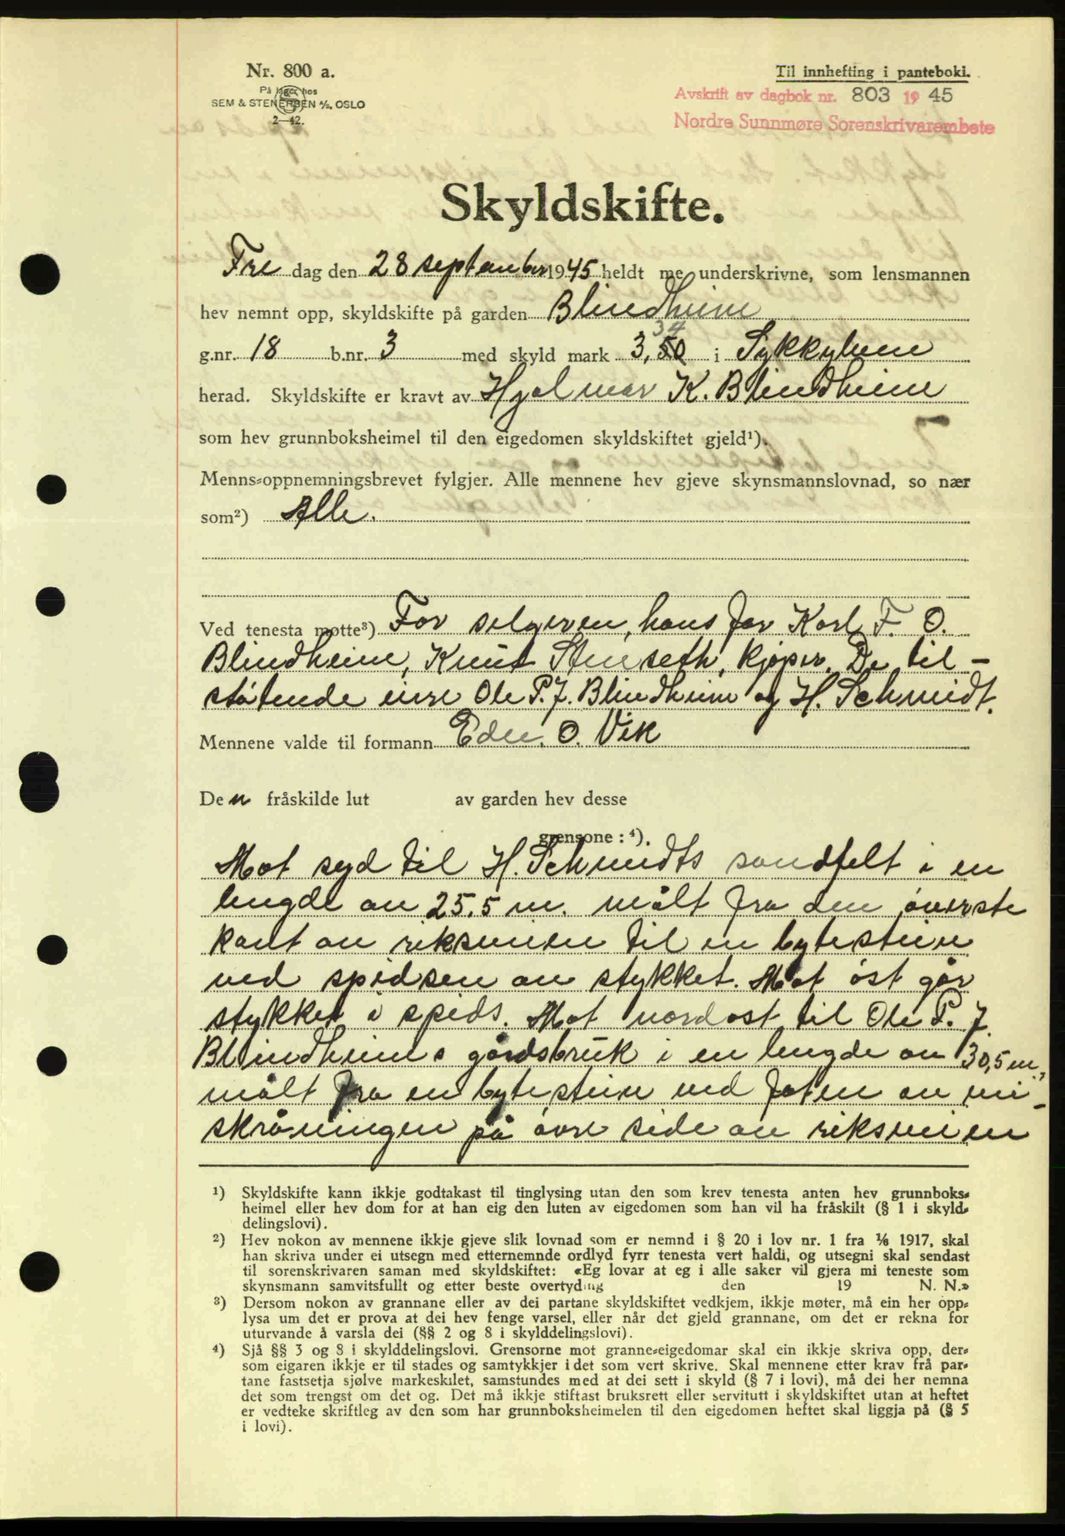 Nr. 800 a.
På lager hos
SEM & STENERSEN A/S, OSLO
2—42.
Til innhefting i panteboki.
Avskrift av dagbok nr. 803 1945
Nordre Sunnmøre Sorenskrivarembete
Skyldskifte.
Fre dag den 28 september 1945 heldt me underskrivne, som lensmannen
hev nemnt opp, skyldskifte på garden Blindheim
34
g.nr. 18 b.nr. 3 med skyld mark 3,50 i Sykkylven
herad. Skyldskifte er kravt av Hjalmar K. Blindheim
som hev grunnboksheimel til den eigedomen skyldskiftet gjeld¹).
Menns-oppnemningsbrevet fylgjer. Alle mennene hev gjeve skynsmannslovnad, so nær
som²) Alle.
Ved tenesta møtte³) For selgeren, hans far Karl F. O.
Blindheim, Knut Stenseth, kjøper. De til-
støtende eiere Ole P. J. Blindheim og H. Schmidt.
Mennene valde til formann Edv. O. Vik
Den fråskilde lut av garden hev desse
grensone: ⁴).
Mot syd til H. Schmidts sandfelt i en
lengde av 25.5 m. målt fra den øverste
kant av riksveien til en bytestein
ved spidsen av stykket. Mot øst går
stykket i spids. Mot nordost til Ole P. J.
Blindheims gårdsbruk i en lengde av 30,5 m,
målt fra en bytestein ved foten av vei-
skråningen på øvre side av riksveien
¹) Skyldskifte kann ikkje godtakast til tinglysing utan den som krev tenesta anten hev grunnboks-
heimel eller hev dom for at han eig den luten av eigedomen som han vil ha fråskilt (§ 1 i skyld-
delingslovi).
²) Hev nokon av mennene ikkje gjeve slik lovnad som er nemnd i § 20 i lov nr. 1 fra 1/6 1917, skal
han skriva under ei utsegn med etternemnde ordlyd fyrr tenesta vert haldi, og utsegni skal sendast
til sorenskrivaren saman med skyldskiftet: «Eg lovar at eg i alle saker vil gjera mi teneste som
skynsmann samvitsfullt og etter beste overtyding den 19 N. N.»
³) Dersom nokon av grannane eller av dei partane skyldskiftet vedkjem, ikkje møter, må ein her opp-
lysa um det er prova at dei hev fenge varsel, eller når det gjeld grannane, om det er rekna for
uturvande å varsla dei (§§ 2 og 8 i skylddelingslovi).
⁴) Sjå §§ 3 og 8 i skylddelingslovi. Grensorne mot granne-eigedomar skal ein ikkje skriva opp, der-
som eigaren ikkje er til stades og samtykkjer i det som vert skrive. Skal mennene etter krav frå par-
tane fastsetja sjølve markeskilet, samstundes med at dei sett i skyld (§ 7 i lovi), må dei her nemna
det som trengst om det og. Det må ikkje stiftast bruksrett eller servitutt i skyldskiftet utan at heftet
er vedteke skriftleg av den som har grunnboksheimelen til den eigedomen heftet skal liggja på (§ 5
i lovi).